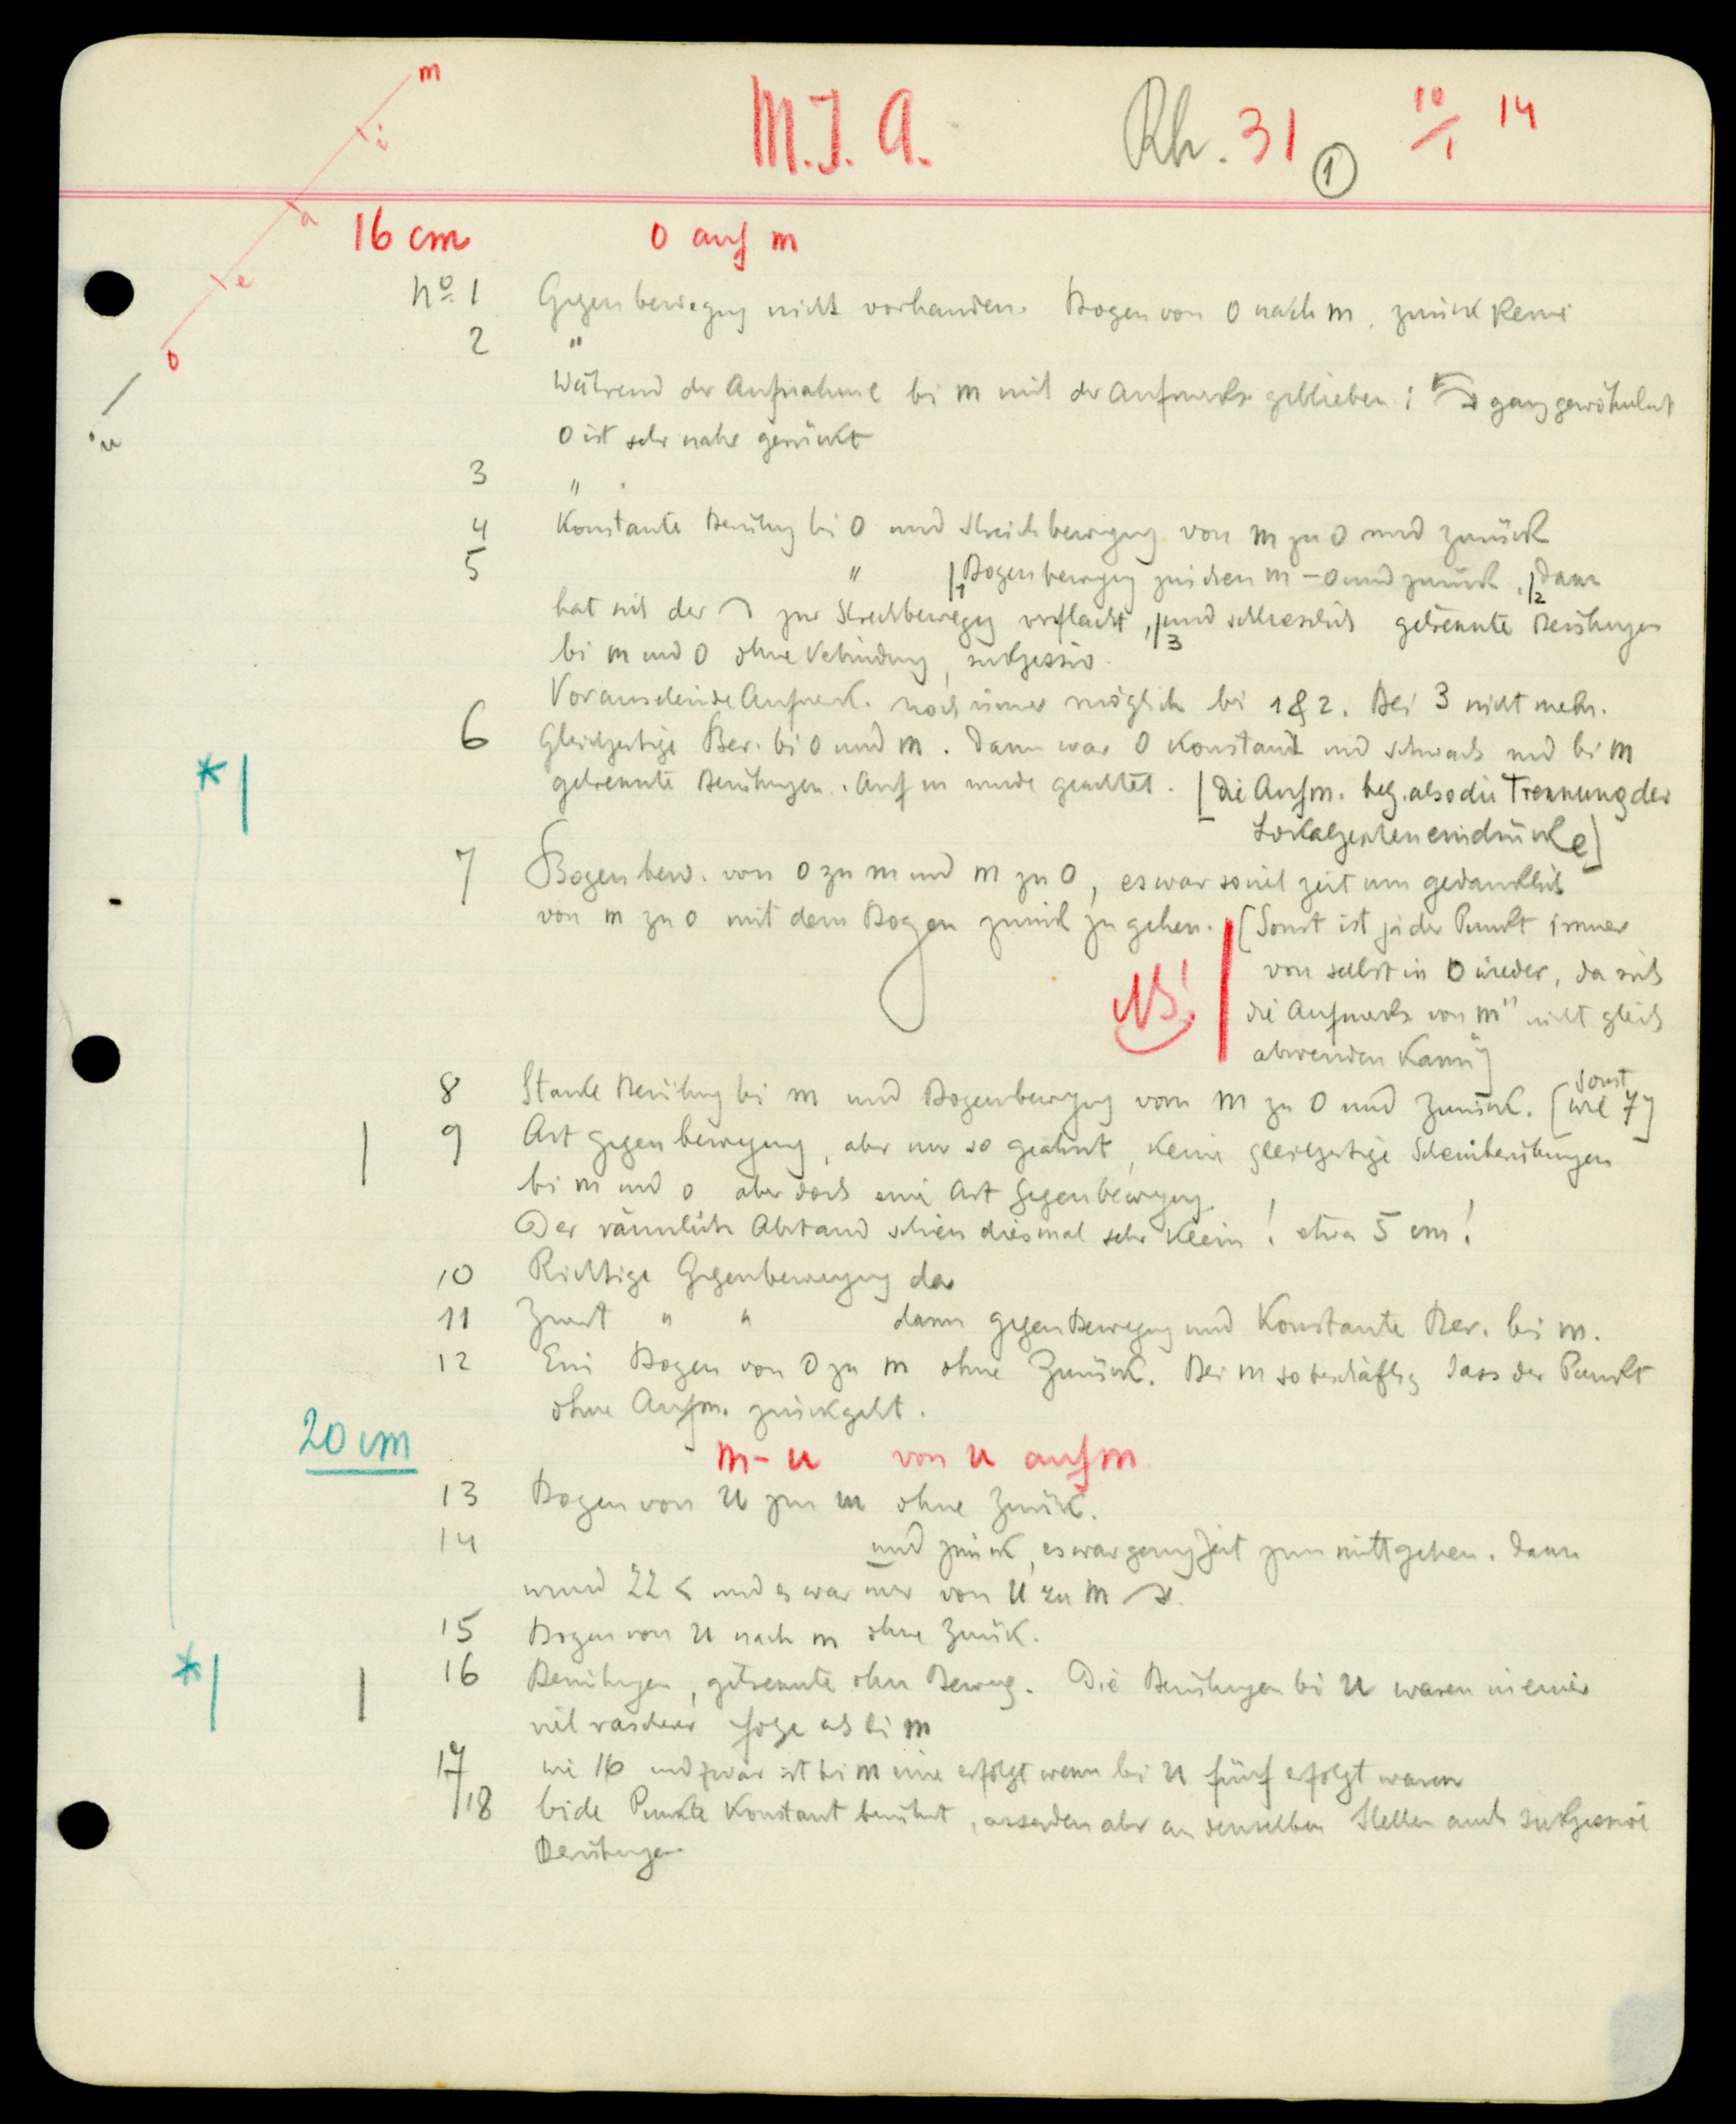 m
i
a
e
o
u
M.J.A. Rh. 31 ① 10/1 14
16 cm o auf m
No. 1 Gegenbewegung nicht vorhanden. Bogen von o nach m, zurück keine
2 "
Während der Aufnahme bei m mit der Aufmerks. geblieben; ganz gewöhnlich
o ist sehr nahe gerückt
3 "
4 Konstante Berührg bei o und Streichbewegung von m zu o und zurück
5 " |1 Bogenbewegung zwischen m-o und zurück, |2 dann
hat sich der ⌒ zur Streichbewegung verflacht, |3 und schliesslich getrennte Berührungen
bei m und o ohne Verbindung, sukzessiv.
Vorauseilende Aufmerk. noch immer möglich bei 1 & 2. Bei 3 nicht mehr.
6 Gleichzeitige Ber. bei o und m. Dann war o konstant und schwach und bei m
getrennte Berührungen. Auf m wurde geachtet. [Die Aufm. beg. also die Trennung der
Lokalzeiteneindrücke]
7 Bogenbew. von o zu m und m zu o, es war soviel zeit um gedanklich
von m zu o mit dem Bogen zurück zu gehen. [Sonst ist jeder Punkt immer
von selbst in o wieder, da sich
NB! die Aufmerks von "m" nicht gleich
abwenden kann]
8 Starke Berührg bei m und Bogenbewegung vom m zu o und zurück. [sonst wie 7]
9 Art Gegenbewegung, aber nur so geahnt, keine gleichzeitige Scheinberührungen
bei m und o aber doch eine Art Gegenbewegung
Der räumliche Abstand schien diesmal sehr klein! etwa 5 cm!
10 Richtige Gegenbewegung da
11 Zuerst " " dann Gegenbewegung und Konstante Ber. bei m.
12 Ein Bogen von o zu m ohne Zurück. Bei m so beschäftig dass der Punkt
ohne Aufm. zurückgeht.
20 cm m-u von u auf m
13 Bogen von u zu m ohne Zurück.
14 und zurück, es war genug Zeit zum mittgehen. Dann
wurd 22 < und es war nur von u zu m
15 Bogen von u nach m ohne Zurück.
16 Berührungen, getrennte ohne Beweg. Die Berührungen bei u waren in einer
viel rascherer Folge als bei m
17 wie 16 und zwar ist bei m eine erfolgt wenn bei u fünf erfolgt waren
18 beide Punkte konstant berührt, ausserdem aber an denselben Stellen auch sukzessive
Berührungen